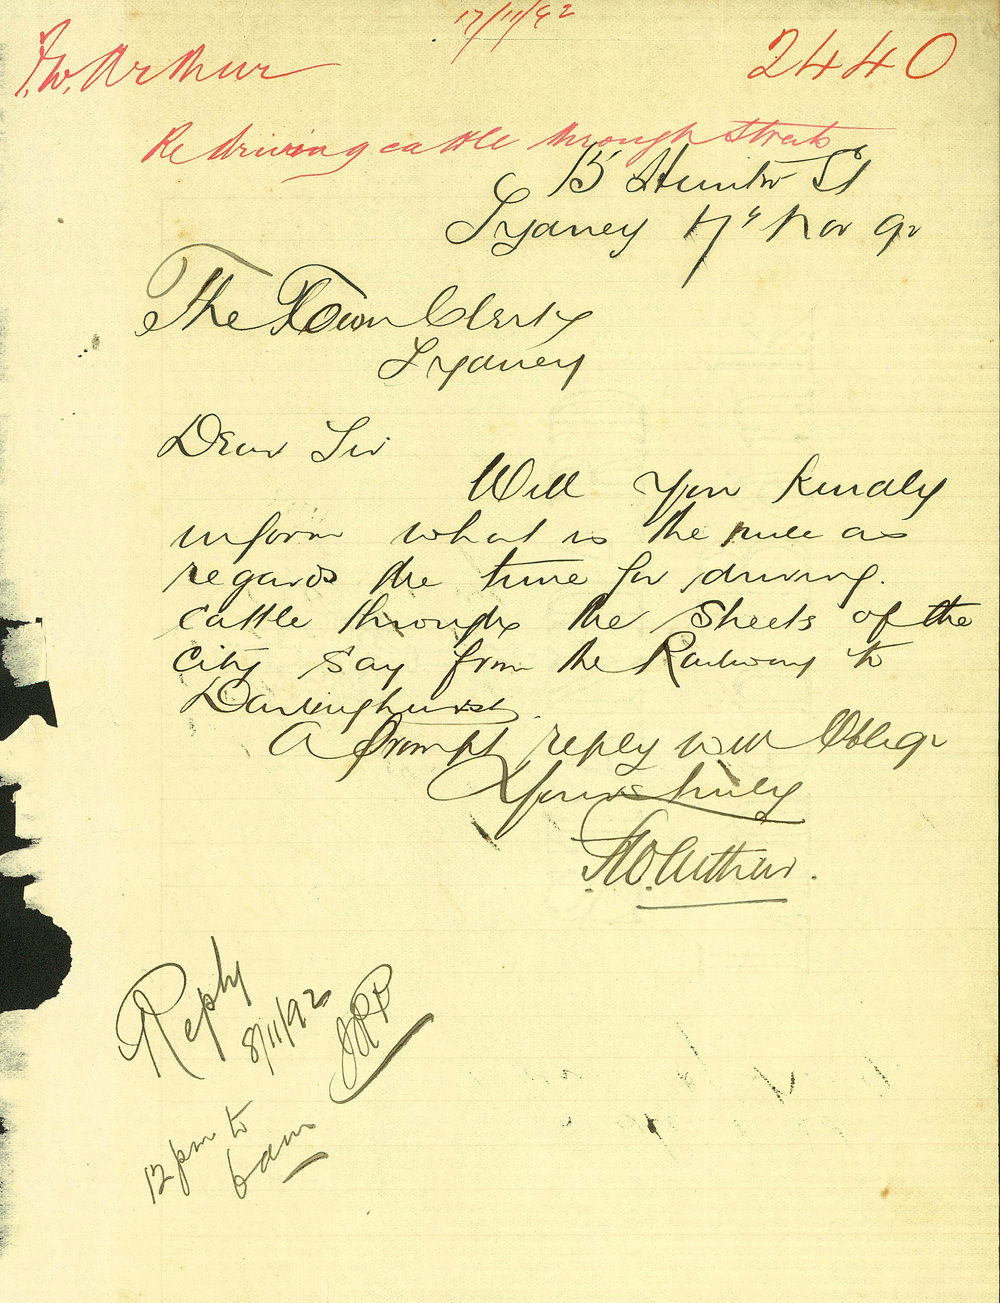 17/11/92
F. W. Arthur
2440
Re driving cattle through Streets
15 Hunter St
Sydney 17th Nov 92
The Town Clerk
Sydney
Dear Sir
Will you kindly
inform what is the rule as
regards the time for driving
cattle through the Streets of the
City say from the Railway to
Darlinghurst.
A prompt reply will Oblige
Yours truly
F. W. Arthur.
Reply
8/11/92
12 pm to
6 am